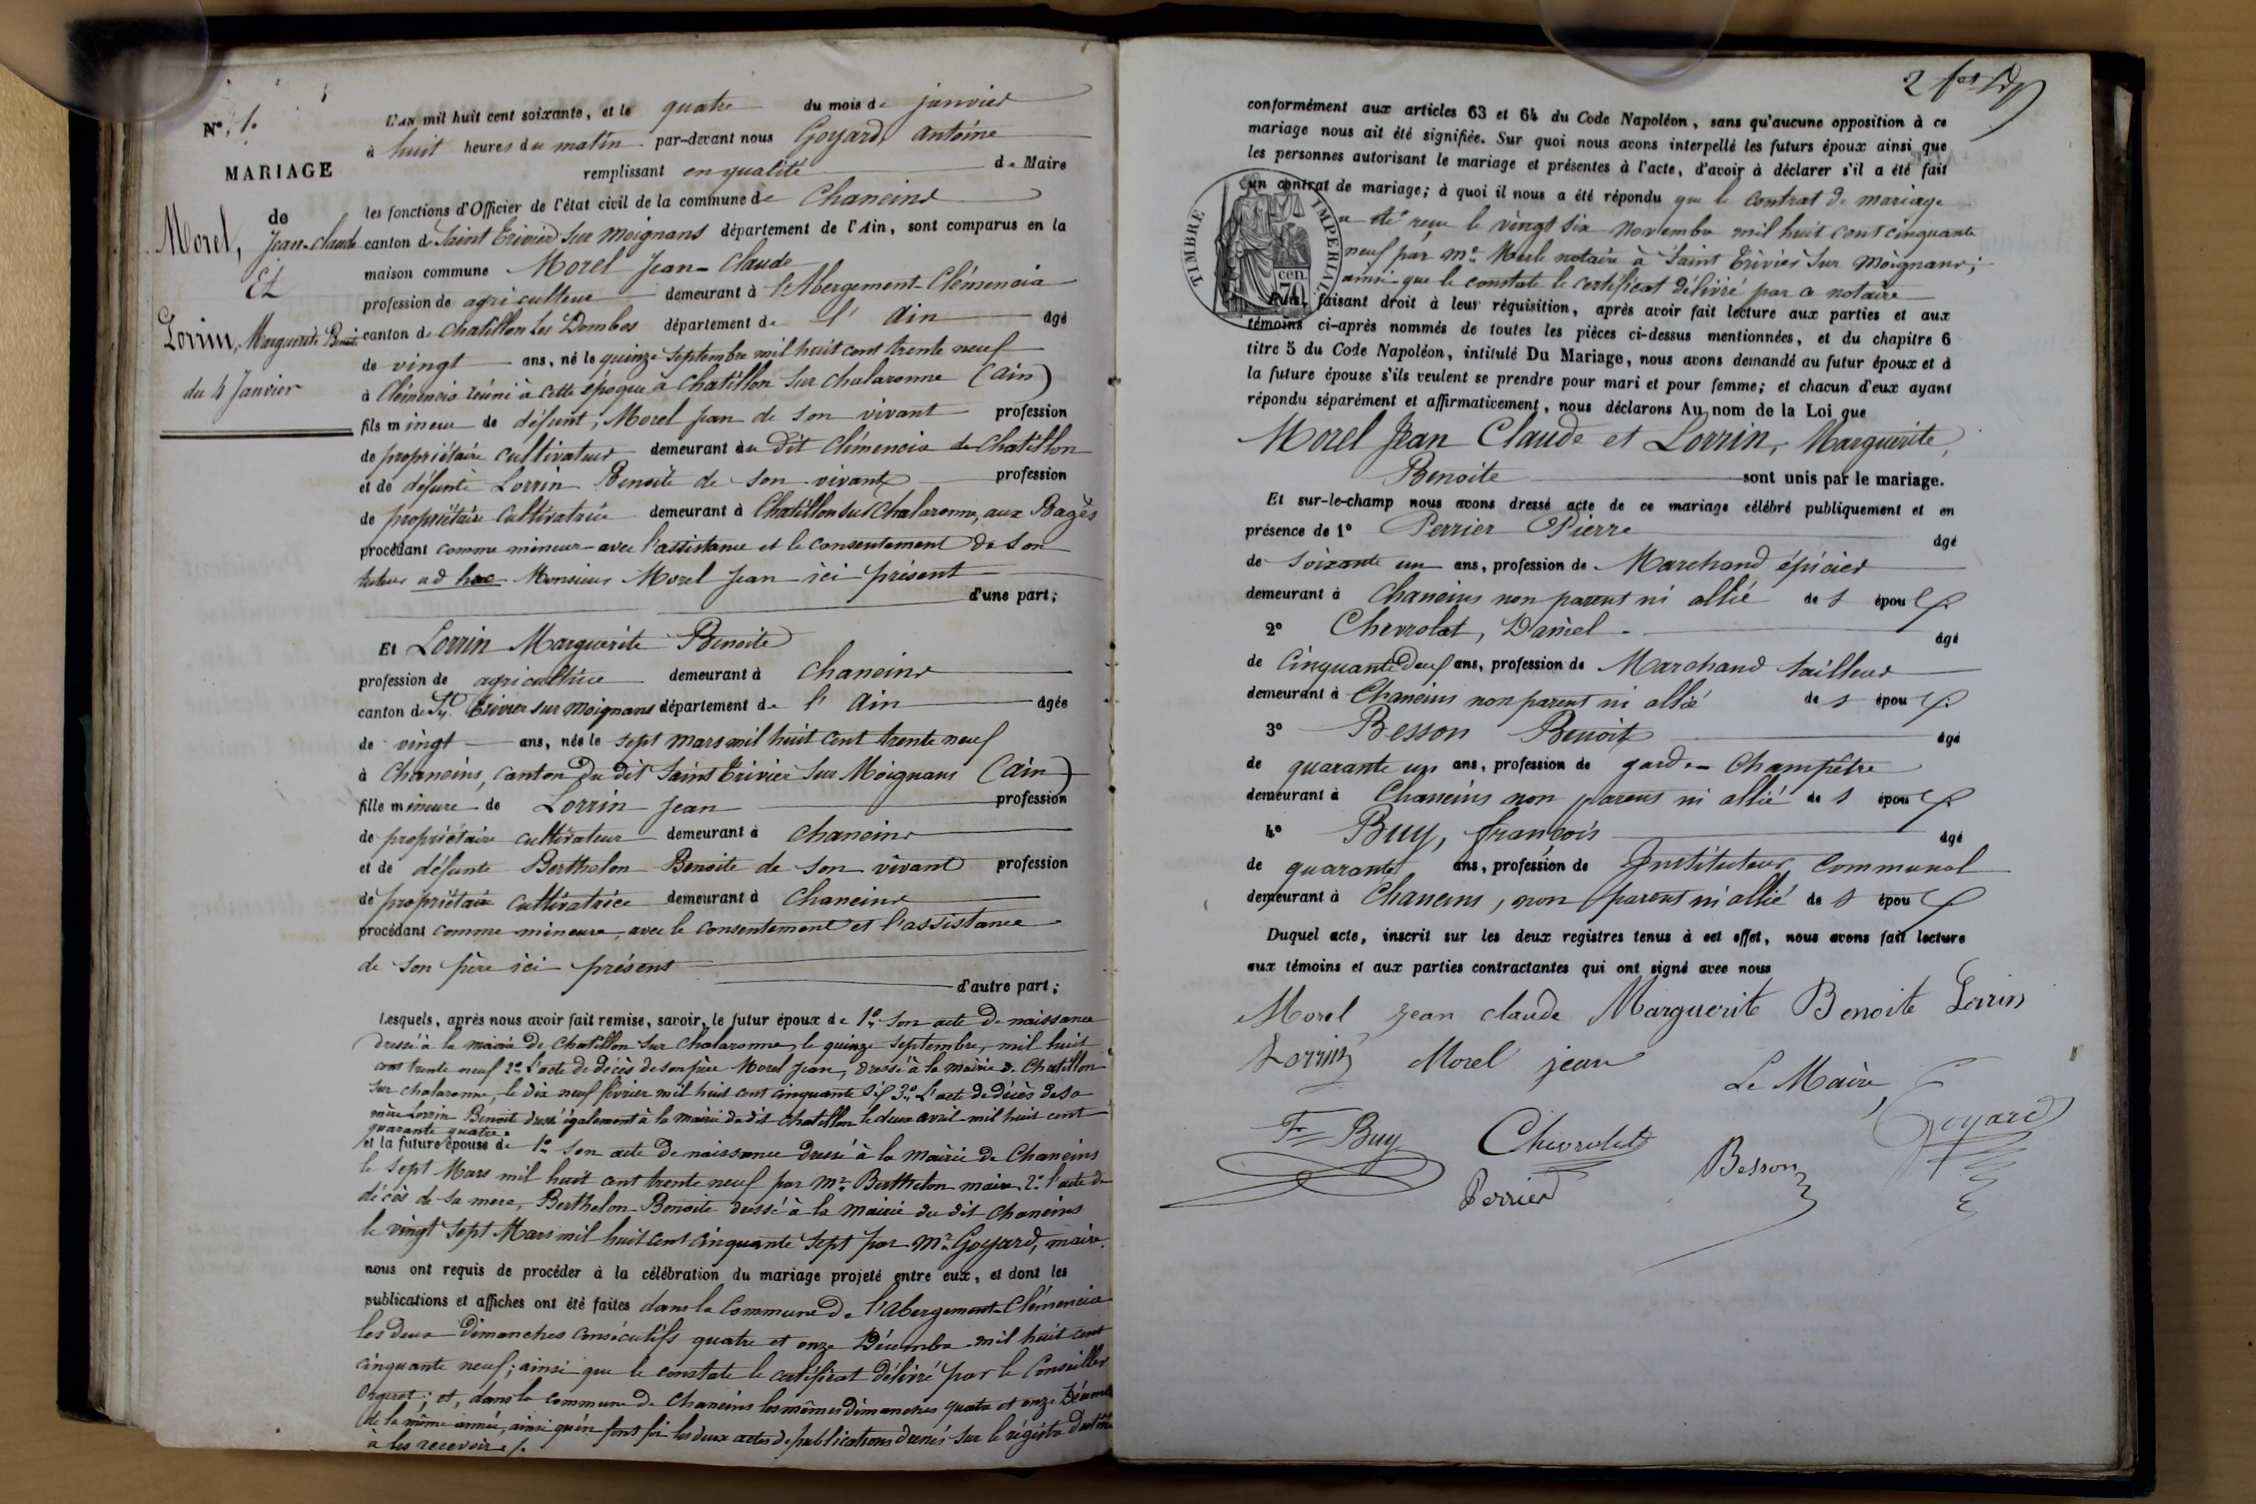 N° 1.
MARIAGE
de
Morel, Jean-claude
Et
Lorrin, Marguerite Benoite
du 4 Janvier
L'AN mil huit cent soixante, et le quatre du mois de janvier
à huit heures du matin par-devant nous Goyard, antoine
remplissant en qualité de Maire
les fonctions d'Officier de l'état civil de la commune de Chaneins
canton de Saint Trivier sur Moignans département de l'Ain, sont comparus en la
maison commune Morel Jean-Claude
profession de agriculteur demeurant à l'Abergement-Clémencia
canton de Chatillon les Dombes département de l'Ain âgé
de vingt ans, né le quinze septembre mil huit cent trente neuf
à Clémencia réuni à cette époque à Chatillon sur Chalaronne (Ain)
fils mineur de défunt, Morel jean de son vivant profession
de propriétaire cultivateur demeurant au dit Clémencia de Chatillon
et de défunte Lorrin Benoite de son vivant profession
de propriétaire cultivatrice demeurant à Chatillon sur Chalaronne, aux Bages
procédant comme mineur avec l'assistance et le consentement de son
tuteur ad hoc Monsieur Morel Jean ici présent
d'une part;
Et Lorrin Marguerite Benoite
profession de agricultrice demeurant à Chaneins
canton de St Trivier sur Moignans département de l'Ain âgée
de vingt ans, née le sept mars mil huit cent trente neuf
à Chaneins, canton du dit Saint Trivier sur Moignans (Ain)
fille mineure de Lorrin Jean profession
de propriétaire cultivateur demeurant à Chaneins
et de défunte Berthelon Benoite de son vivant profession
de propriétaire cultivatrice demeurant à Chaneins
procédant comme mineure, avec le consentement et l'assistance
de son père ici présent
d'autre part;
Lesquels, après nous avoir fait remise, savoir, le futur époux de 1° son acte de naissance
dressé à la mairie de Chatillon sur Chalaronne, le quinze septembre, mil huit
cent trente neuf 2° l'acte de décès de son père Morel Jean, dressé à la mairie de Chatillon
sur chalaronne, le dix neuf février mil huit cent cinquante 3° L'acte de décès de sa
mère Lorrin Benoite dressé également à la mairie du dit Chatillon le deux avril mil huit cent
quarante quatre.
et la future épouse de 1° son acte de naissance dressé à la mairie de Chaneins
le sept Mars mil huit cent trente neuf par Mr Berthelon maire 2° l'acte de
décès de sa mere, Berthelon Benoite dressé à la mairie du dit Chaneins
le vingt sept Mars mil huit cent cinquante sept par Mr Goyard, maire.
nous ont requis de procéder à la célébration du mariage projeté entre eux, et dont les
publications et affiches ont été faites dans la Commune de l'Abergement-Clémencia
les deux dimanches consécutifs quatre et onze Décembre mil huit cent
cinquante neuf; ainsi que le constate le certificat délivré par le Conseiller
Orgeret; et, dans la commune de Chaneins les mêmes dimanches quatre et onze Décembre
de la même année, ainsi qu'en font foi les deux actes de publications dressés sur le registre destiné
à les recevoir.
2
conformément aux articles 63 et 64 du Code Napoléon, sans qu'aucune opposition à ce
mariage nous ait été signifiée. Sur quoi nous avons interpellé les futurs époux ainsi que
les personnes autorisant le mariage et présentes à l'acte, d'avoir à déclarer s'il a été fait
un contrat de mariage; à quoi il nous a été répondu que le contrat de mariage
a été reçu le vingt six novembre mil huit cent cinquante
neuf par Me Merle notaire à Saint Trivier sur Moignans;
ainsi que le constate le certificat délivré par ce notaire
TIMBRE IMPERIAL
70 cen
Puis, faisant droit à leur réquisition, après avoir fait lecture aux parties et aux
témoins ci-après nommés de toutes les pièces ci-dessus mentionnées, et du chapitre 6
titre 5 du Code Napoléon, intitulé Du Mariage, nous avons demandé au futur époux et à
la future épouse s'ils veulent se prendre pour mari et pour femme; et chacun d'eux ayant
répondu séparément et affirmativement, nous déclarons Au nom de la Loi que
Morel Jean Claude et Lorrin, Marguerite,
Benoite sont unis par le mariage.
Et sur-le-champ nous avons dressé acte de ce mariage célébré publiquement et en
présence de 1° Perrier Pierre âgé
de soixante un ans, profession de Marchand épicier
demeurant à Chaneins non parent ni allié des époux
2° Chevrolat, Daniel âgé
de Cinquante deux ans, profession de Marchand tailleur
demeurant à Chaneins non parent ni allié des époux
3° Besson Benoit âgé
de quarante un ans, profession de garde-Champêtre
demeurant à Chaneins non parent ni allié des époux
4° Buy, françois âgé
de quarante ans, profession de Instituteur communal
demeurant à Chaneins, non parent ni allié des époux
Duquel acte, inscrit sur les deux registres tenus à cet effet, nous avons fait lecture
aux témoins et aux parties contractantes qui ont signé avec nous
Morel jean claude Marguerite Benoite Lorrin
Lorrin Morel jean
Le Maire,
Goyard
F Buy Chevrolat
Besson
Perrier